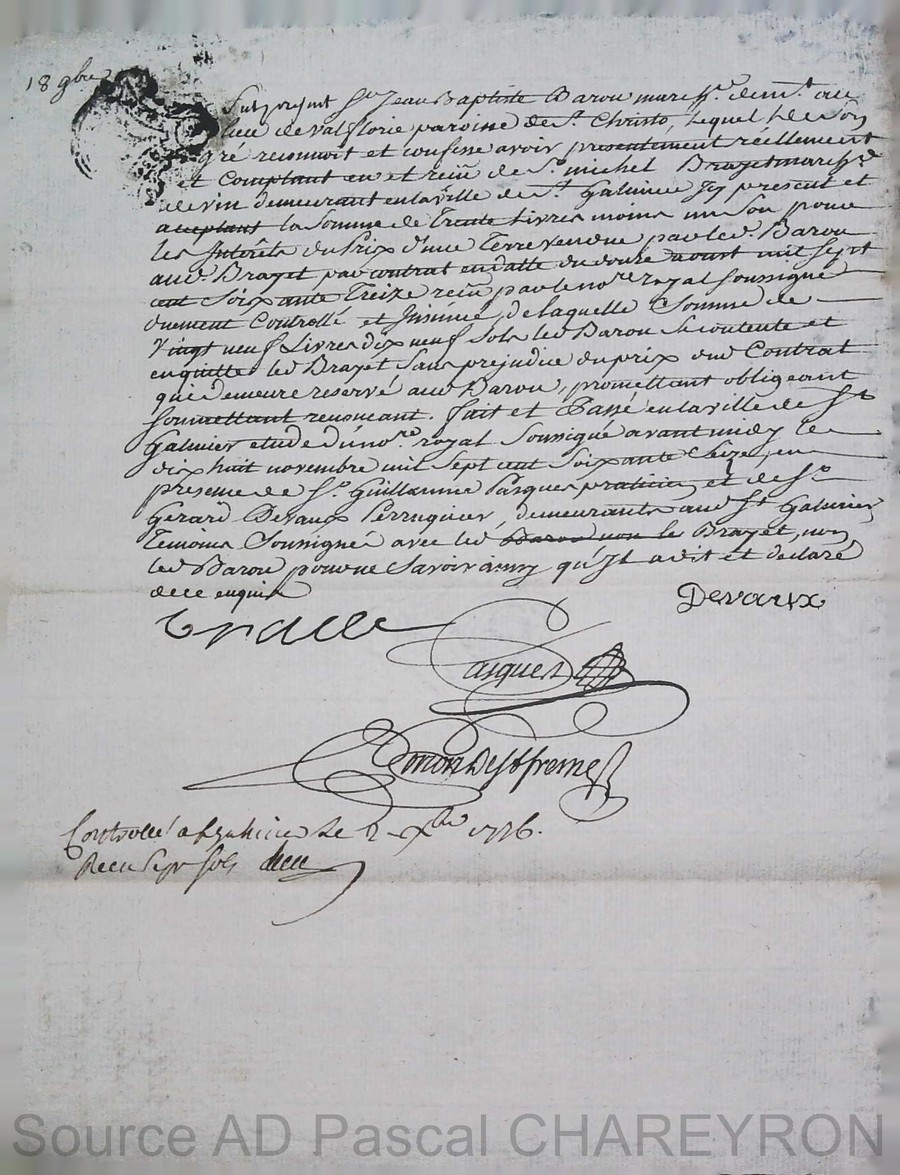 18 9bre
Fut présent Sr Jean Baptiste Barou march. demt au
lieu de Valflorie paroisse de St Christo, lequel de son
gré reconnoit et confesse avoir presentement réellement
et Comptant eu et reçu de Sr michel Brazet march.
de vin demeurant en la ville de St Galmier Icy present et
acceptant la Somme de Trente Livres moins un Sou pour
les Intérêts du Prix d'une Terre vendue par led. Barou
aud. Brazet par contrat en datte du douze aoust mil Sept
cent Soixante Treize reçu par le nore royal Soussigné
duement Controllé et Insinué, de laquelle Somme de
Vingt neuf Livres dix neuf Sols led Barou Se contente et
en quitte led Brazet Sans prejudice du prix dud Contrat
qui demeure reservé aud Barou, promettant obligeant
Soumettant renoncant. fait et Passé en la ville de St
Galmier etude dud nore royal Soussigné avant midy le
dix huit novembre mil Sept cent Soixante Seize, en
presence de Sr Guillaume Pasquet praticien et de Sr
Gerard Devaux Perruquier, demeurants aud St Galmier
Temoins Soussignés avec led Barou non le Brazet, non
led Barou pour ne Savoir ainsy qu'Il a dit et declaré
de ce enquis
Devaux
Pasquet
Controllé a St galmier Le 2 Xbre 1776.
Recu Sept Sols
Source AD Pascal CHAREYRON